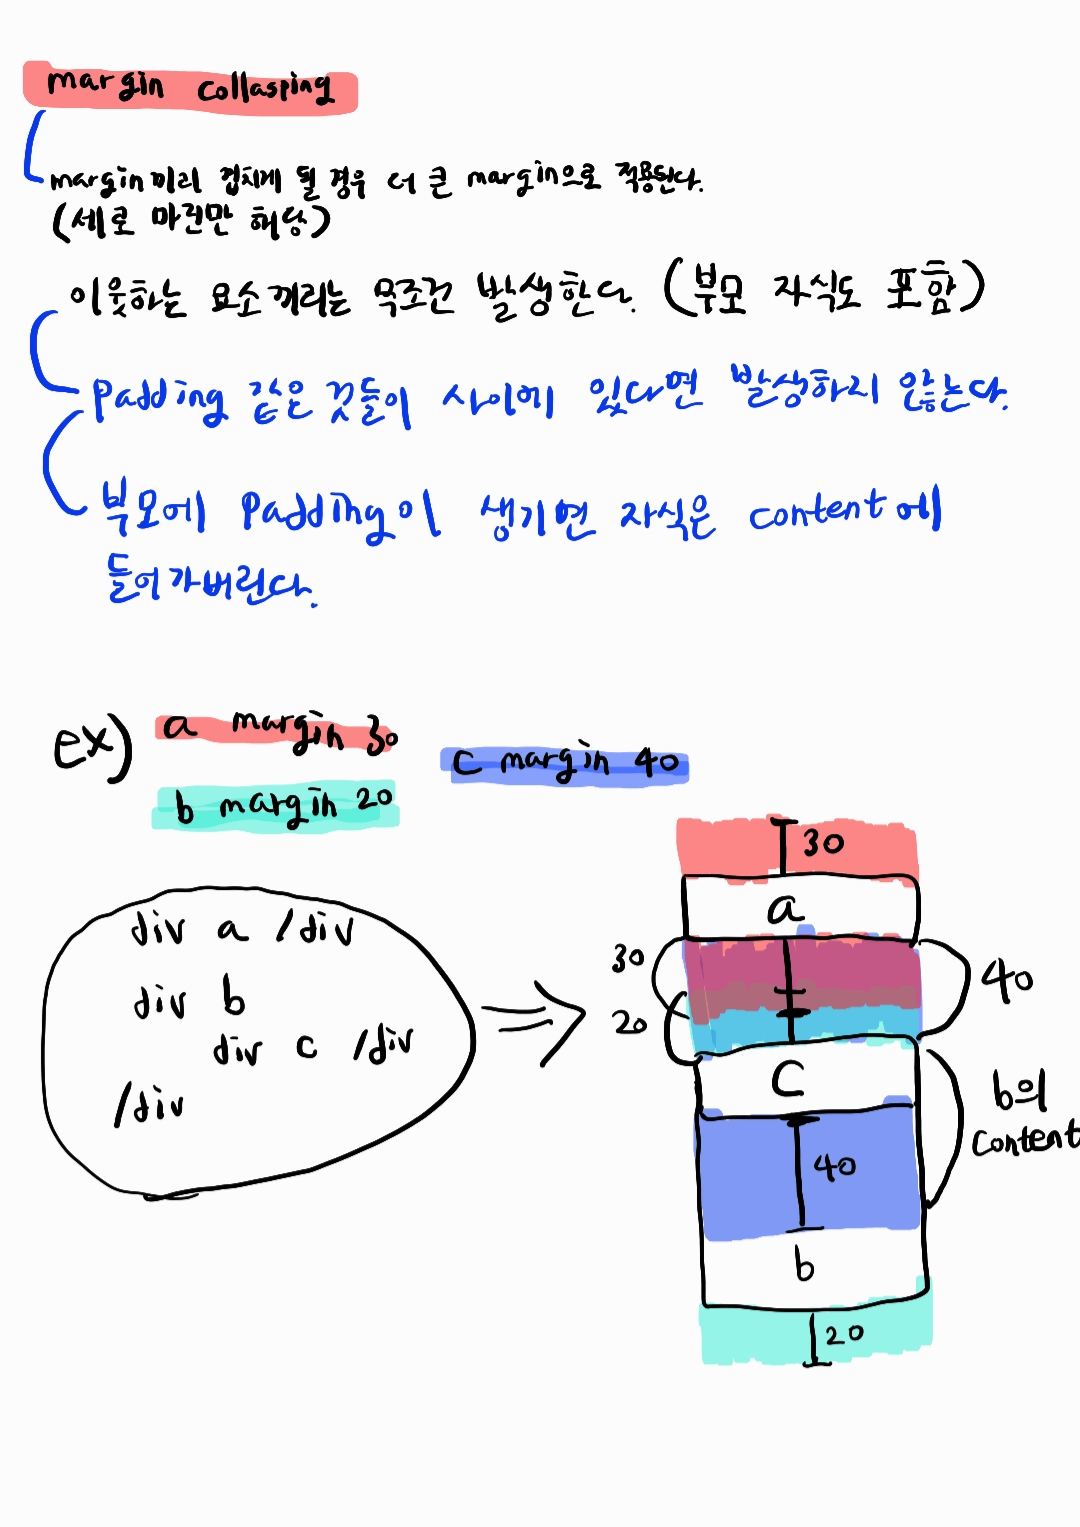 margin collasping
margin끼리 겹치게 될 경우 더 큰 margin으로 적용된다.
(세로 마진만 해당)
이웃하는 요소 끼리는 무조건 발생한다. (부모 자식도 포함)
Padding 같은 것들이 사이에 있다면 발생하지 않는다.
부모에 Padding이 생기면 자식은 content에
들어가버린다.
ex) a margin 30
c margin 40
b margin 20
30
a
div a /div
30
40
div b
20
div c /div
c
/div
b의
content
40
b
20